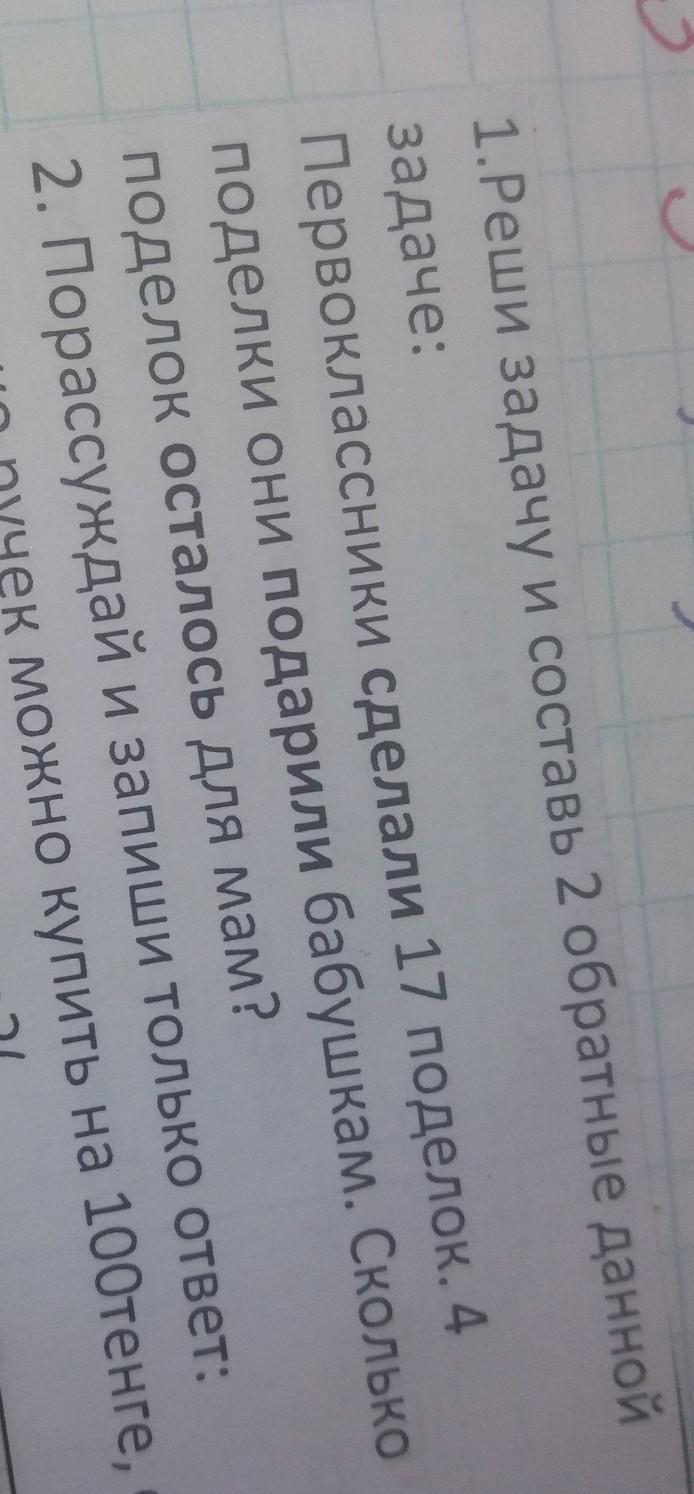 1.Реши задачу и составь 2 обратные данной
задаче:
Первоклассники сделали 17 поделок. 4
поделки они подарили бабушкам. Сколько
поделок осталось для мам?
2. Порассуждай и запиши только ответ:
ручек можно купить на 100тенге,